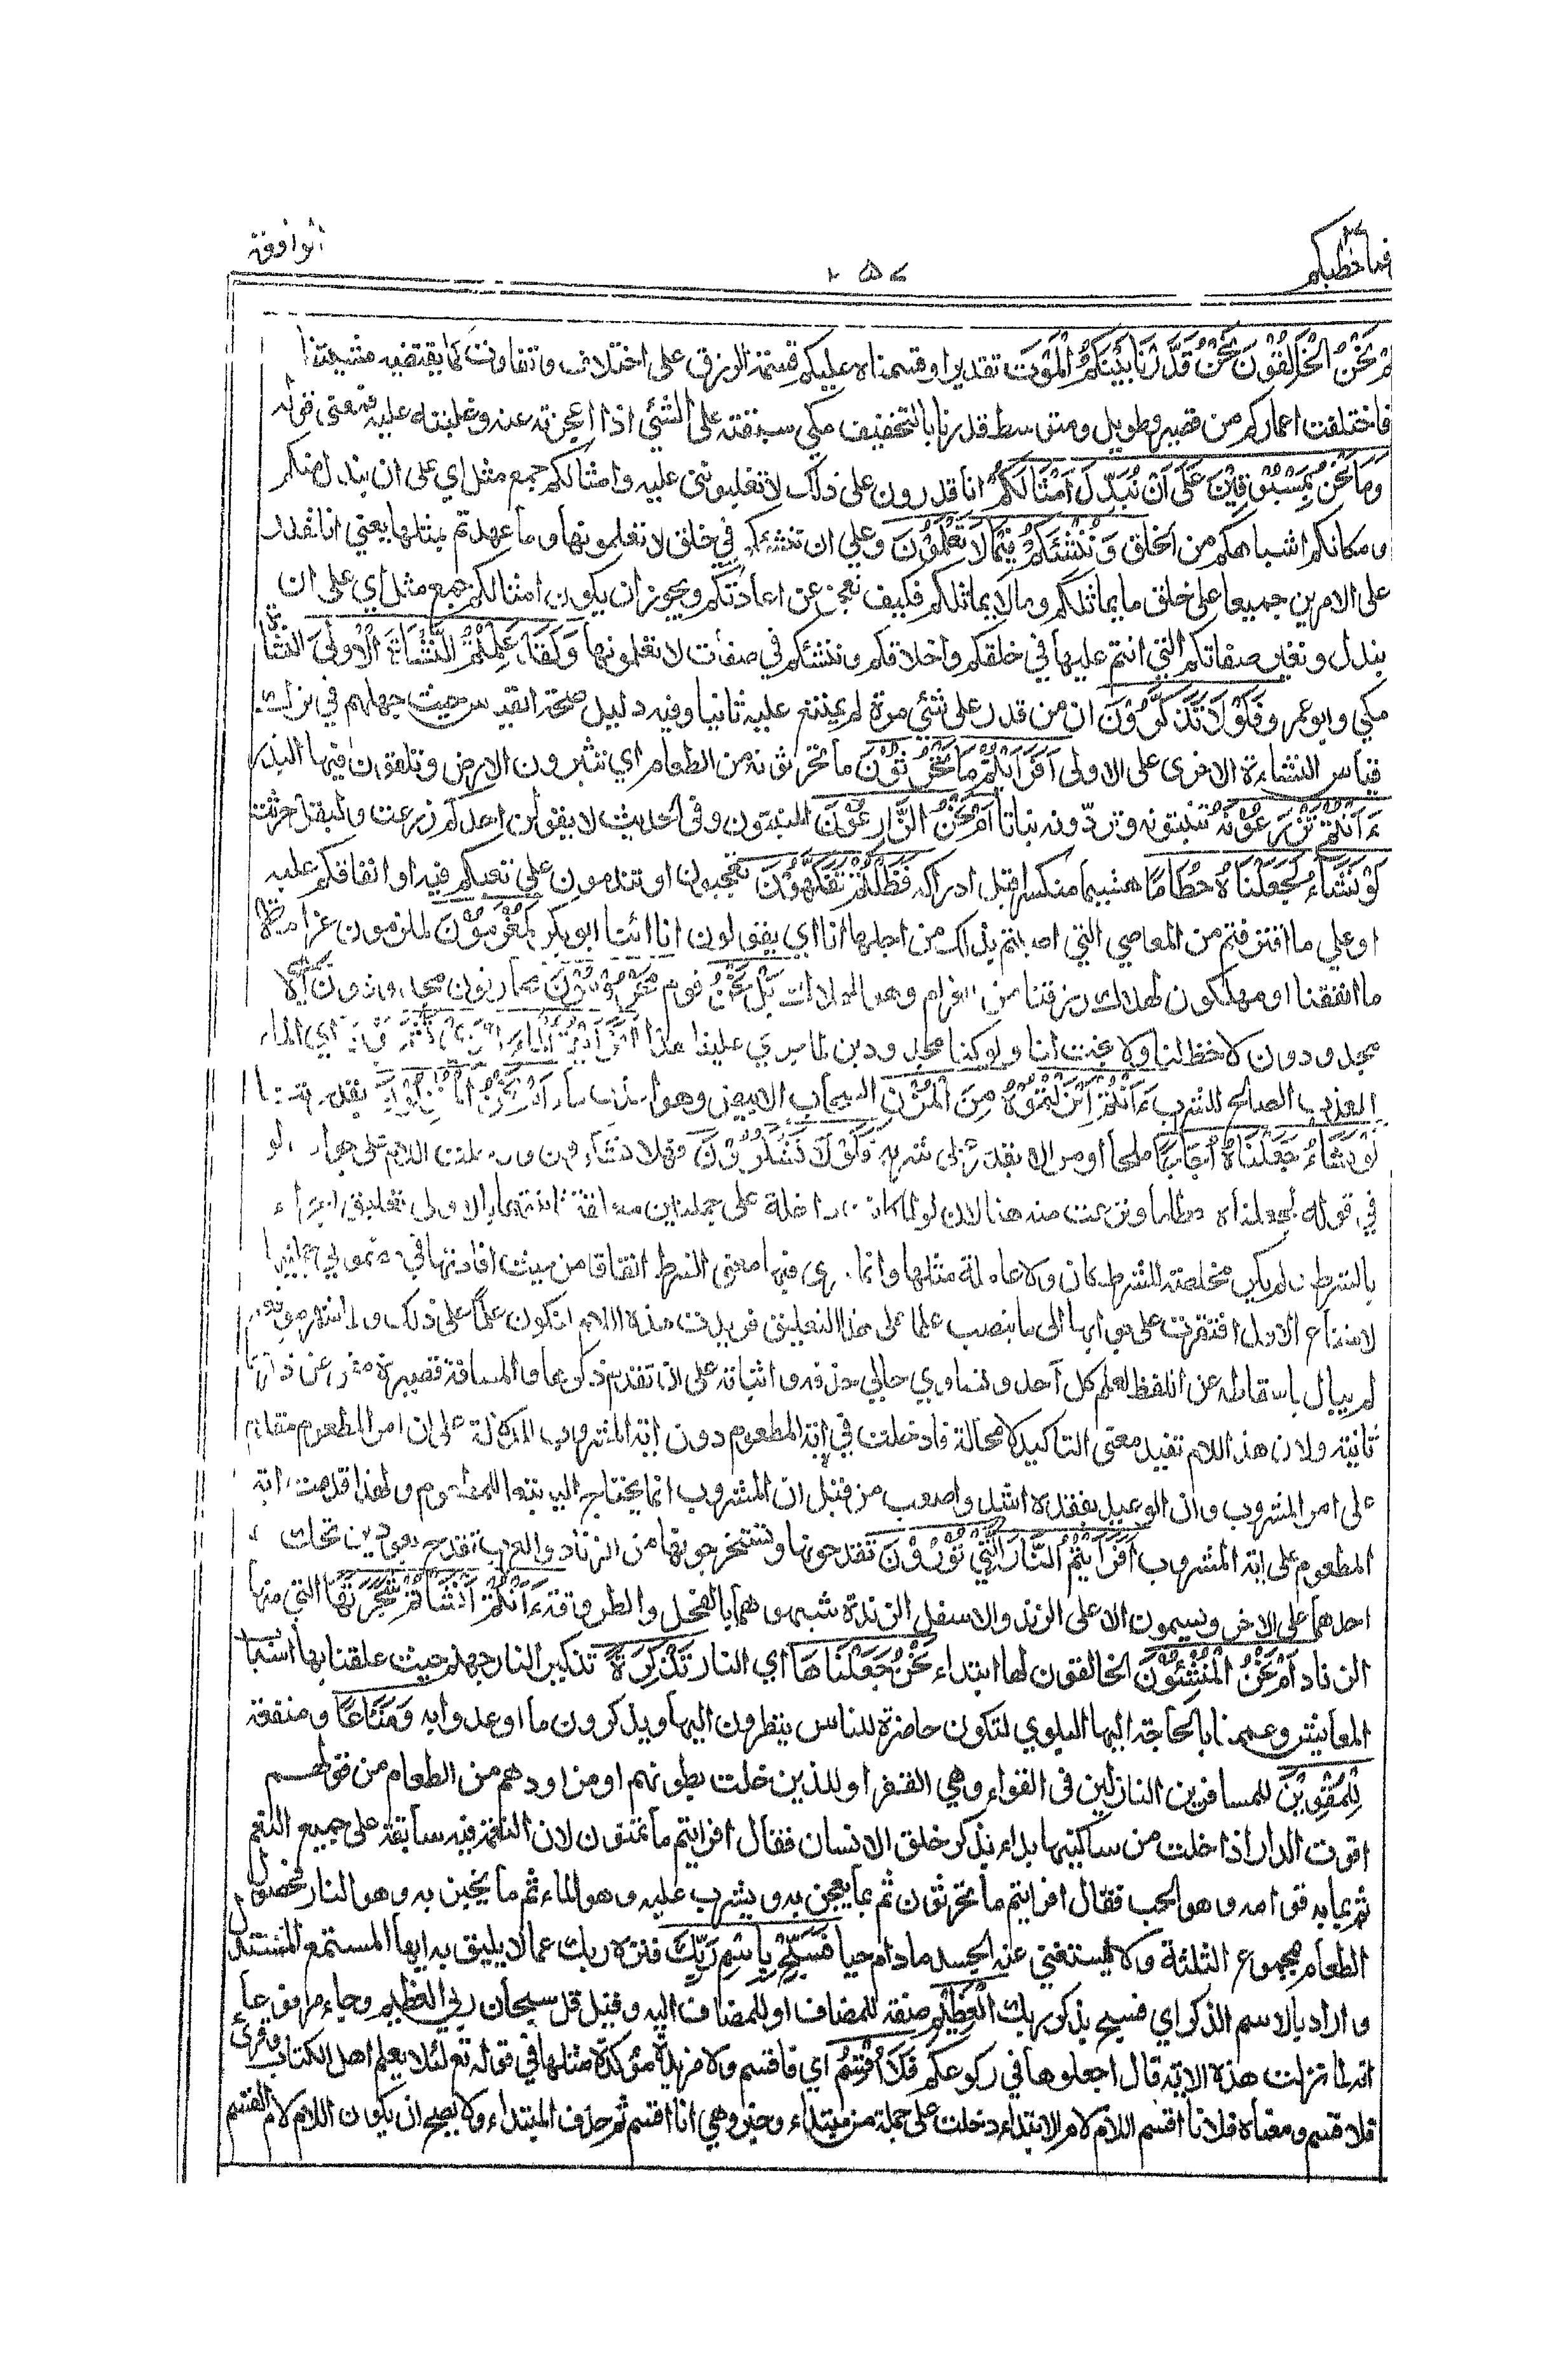 قال فما خطبكم
٢٥٧
الواقعة
أم نَحْنُ الْخَالِقُوْنَ نَحْنُ قَدَّرْنَا بَيْنَكُمُ الْمَوْتَ تقديرا وقسمناه عليكم قسمة الرزق على اختلاف وتفاوت كما يقتضيه مشيتنا
فاختلفت اعماركم من قصير وطويل ومتوسط قدرنا بالتخفيف مكي سبقته على الشئ اذا اعجزته عنه وغلبته عليه فمعنى قوله
وَمَا نَحْنُ بِمَسْبُوْقِيْنَ عَلَى اَنْ نُبَدِّلَ اَمْثَالَكُمْ انا قادرون على ذلك لا تغلبوننى عليه وامثالكم جمع مثل اي على ان نبدل منكم
ومكانكم اشباهكم من الخلق وَنُنْشِئَكُمْ فِيْمَا لَا تَعْلَمُوْنَ وعلى ان ننشئكم في خلق لا تعلمونها وما عهدتم بمثلها يعني انا نقدر
على الامرين جميعا على خلق ما يماثلكم وما لا يماثلكم فكيف نعجز عن اعادتكم ويجوز ان يكون امثالكم جمع مثل اي على ان
نبدل ونغير صفاتكم التي انتم عليها في خلقكم واخلاقكم وننشئكم في صفات لا تعلمونها وَلَقَدْ عَلِمْتُمُ النَّشْاَةَ الْاُوْلٰى النشاءة
مكي وابو عمرو فَلَوْلَا تَذَكَّرُوْنَ ان من قدر على شئ مرة لم يمتنع عليه ثانيا وفيه دليل صحة القياس حيث جهلهم في ترك
قياس النشاءة الاخرى على الاولى اَفَرَاَيْتُمْ مَا تَحْرُثُوْنَ ما تحرثونه من الطعام اي تثيرون الارض وتلقون فيها البذر
ءَاَنْتُمْ تَزْرَعُوْنَهُ تنبتونه وتردّونه نباتا اَمْ نَحْنُ الزَّارِعُوْنَ المنبتون وفى الحديث لا يقولن احدكم زرعت وليقل حرثت
لَوْ نَشَاءُ لَجَعَلْنَاهُ حُطَامًا هشيما منكسرا قبل ادراكه فَظَلْتُمْ تَفَكَّهُوْنَ تعجبون او تندمون على تعبكم فيه او انفاقكم عليه
او على ما اقترفتم من المعاصي التي اصبتم بذلك من اجلها انا اي يقولون انا ائنا ابوبكر لَمُغْرَمُوْنَ لملزمون غرامة
ما انفقنا او مهلكون لهلاك رزقنا من الغرام وهو الهلاك بَلْ نَحْنُ قوم مَحْرُوْمُوْنَ محارفون محدودون لا
مجدودون لا حظ لنا ولا بخت لنا ولو كنا مجدودين لما جرى علينا هذا اَفَرَاَيْتُمُ الْمَاءَ الَّذِيْ تَشْرَبُوْنَ اي الماء
العذب الصالح للشرب ءَاَنْتُمْ اَنْزَلْتُمُوْهُ مِنَ الْمُزْنِ السحاب الابيض وهو اعذب ماء اَمْ نَحْنُ الْمُنْزِلُوْنَ بقدرتنا
لَوْ نَشَاءُ جَعَلْنَاهُ اُجَاجًا ملحا او مرا لا يقدر على شربه فَلَوْلَا تَشْكُرُوْنَ فهلا تشكرون ودخلت اللام على جواب لو
في قوله لجعلناه حطاما ونزعت منه هنا لان لو لما كانت داخلة على جملتين معلقة ثانيتهما بالاولى تعليق الجزاء
بالشرط ولم يكن مخلصة للشرط كان ولا عاملة مثلها وانما سرى فيها معنى الشرط اتفاقا من حيث افادتها في مضموني جملتيها
لامتناع الاول افتقرت على جوابها الى ما ينصب علما على هذا التعليق فزيدت هذه اللام لتكون علما على ذلك ولما شهر موقعه
لم يبال باسقاطه عن اللفظ لعلم كل احد وتساوي حالي حذفه واثباته على ان تقدم ذكرها والمسافة قصيرة مغن عن ذكرها
ثانية ولان هذ اللام تفيد معنى التاكيد لا محالة فادخلت في اٰية المطعوم دون اٰية المشروب للدلالة على ان امر المطعوم مقدم
على امر المشروب وان الوعيد بفقده اشد واصعب من قبل ان المشروب انما يحتاج اليه تبعا للمطعوم ولهذا قدمت اٰية
المطعوم على اٰية المشروب اَفَرَاَيْتُمُ النَّارَ الَّتِيْ تُوْرُوْنَ تقدحونها وتستخرجونها من الزناد والعرب تقدح بعودين تحك
احدهما على الاخر ويسمون الاعلى الزند والاسفل الزندة شبهوهما بالفحل والطروقة ءَاَنْتُمْ اَنْشَاْتُمْ شَجَرَتَهَا التي منها
الزناد اَمْ نَحْنُ الْمُنْشِئُوْنَ الخالقون لها ابتداء نَحْنُ جَعَلْنَاهَا اي النار تَذْكِرَةً تذكير النار جهنم حيث علقنا بها اسباب
المعايش وعممنا بالحاجة اليها البلوي لتكون حاضرة للناس ينظرون اليها ويذكرون ما اوعدوا به وَمَتَاعًا ومنفعة
لِلْمُقْوِيْنَ للمسافرين النازلين فى القواء وهي القفر او للذين خلت بطونهم او مزاودهم من الطعام من قولهم
اقوت الدار اذا خلت من ساكنيها بداء بذكر خلق الانسان فقال افرايتم ما تمنون لان النعمة فيه سابقة على جميع النعم
ثم بما به قوامه وهو الحب فقال افرايتم ما تحرثون ثم بما يعجن به ويشرب عليه وهو الماء ثم ما يخبز به وهو النار فحصول
الطعام بمجموع الثلثة ولا يستغني عنه الجسد ما دام حيا فَسَبِّحْ بِاسْمِ رَبِّكَ فنزه ربك عما لا يليق به ايها المستمع المستدل
واراد بالاسم الذكر اي فسبح بذكر ربك الْعَظِيْمِ صفة للمضاف او للمضاف اليه وقيل قل سبحان ربي العظيم وجاء مرفوعا
انه لما نزلت هذه الاية قال اجعلوها في ركوعكم فَلَا اُقْسِمُ اي فاقسم ولا مزيدة مؤكدة مثلها في قوله تع لئلا يعلم اهل الكتاب وقرئ
فلاقسم ومعناه فلانا اقسم اللام لام الابتداء دخلت على جملة من مبتداء وخبر وهي انا اقسم ثم حذف المبتداء ولا يصح ان يكون اللام لام القسم